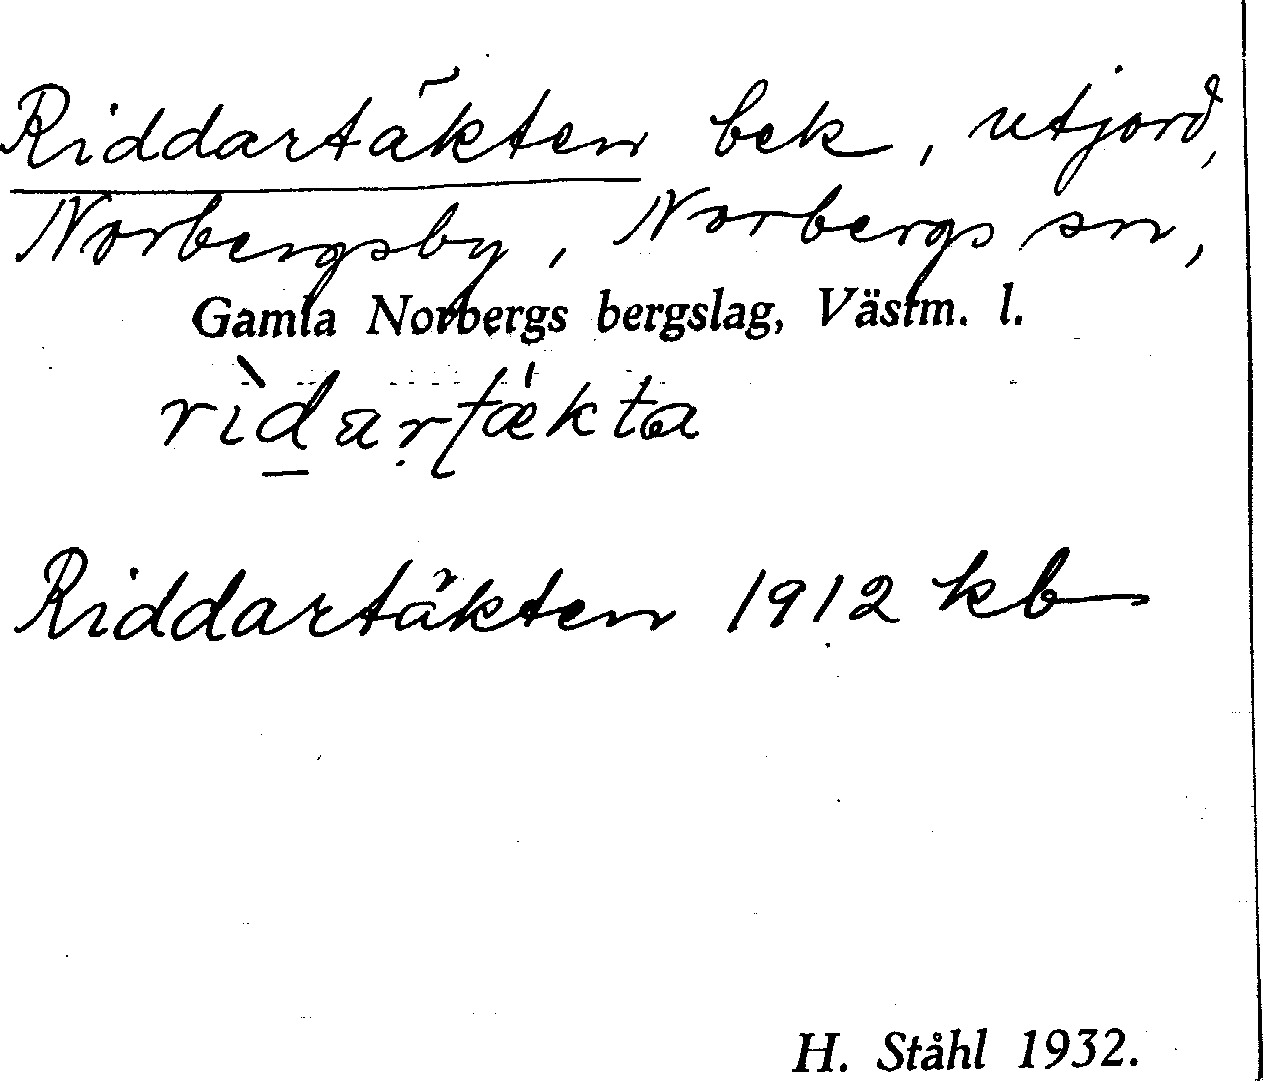 Riddartäkten bek, utjord,
Norbergsby, Norbergs sn,
Gamla Norbergs bergslag, Västm. l.
rìdartǽkta
Riddartäkten 1912 kb
H. Ståhl 1932.